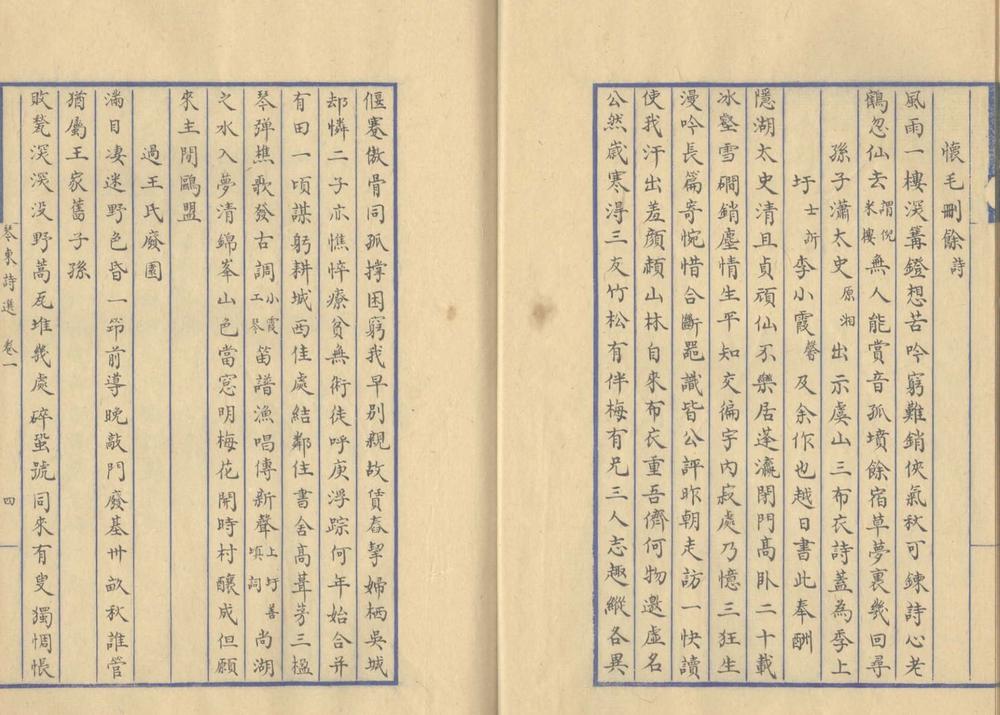 懷毛刪餘詩
風雨一樓深篝鐙想苦吟窮難銷俠氣秋可鍊詩心老
鶴忽仙去謂倪米樓無人能賞音孤墳餘宿草夢裏幾回尋
孫子瀟太史原湘出示虞山三布衣詩蓋為季上
圩士訢李小霞馨及余作也越日書此奉酬
隱湖太史清且貞頑仙不樂居蓬瀛閉門高臥二十載
冰壑雪磵銷塵情生平知交徧宇內寂處乃憶三狂生
漫吟長篇寄惋惜合斷罷識皆公評昨朝走訪一快讀
使我汗出羞顏赬山林自來布衣重吾儕何物邀虛名
公然歲寒淂三友竹松有伴梅有兄三人志趣縱各異
偃蹇傲骨同孤撐困窮我早別親故賃舂挈婦栖吳城
却憐二子亦憔悴療貧無術徒呼庚浮踪何年始合并
有田一頃謀躬耕城西佳處結鄰住書舍高葺茅三楹
琴弹樵歌發古調小霞工琴笛譜漁唱傳新聲上圩善填詞尚湖
之水入夢清錦峯山色當窓明梅花開時村釀成但願
來主閒鷗盟
過王氏廢園
滿目凄迷野色昏一笻前導晚敲門廢基卅畝秋誰管
猶屬王家舊子孫
敗甃深深没野蒿瓦堆幾處碎蛩號同來有叟獨惆悵
琴東詩選 卷一 四